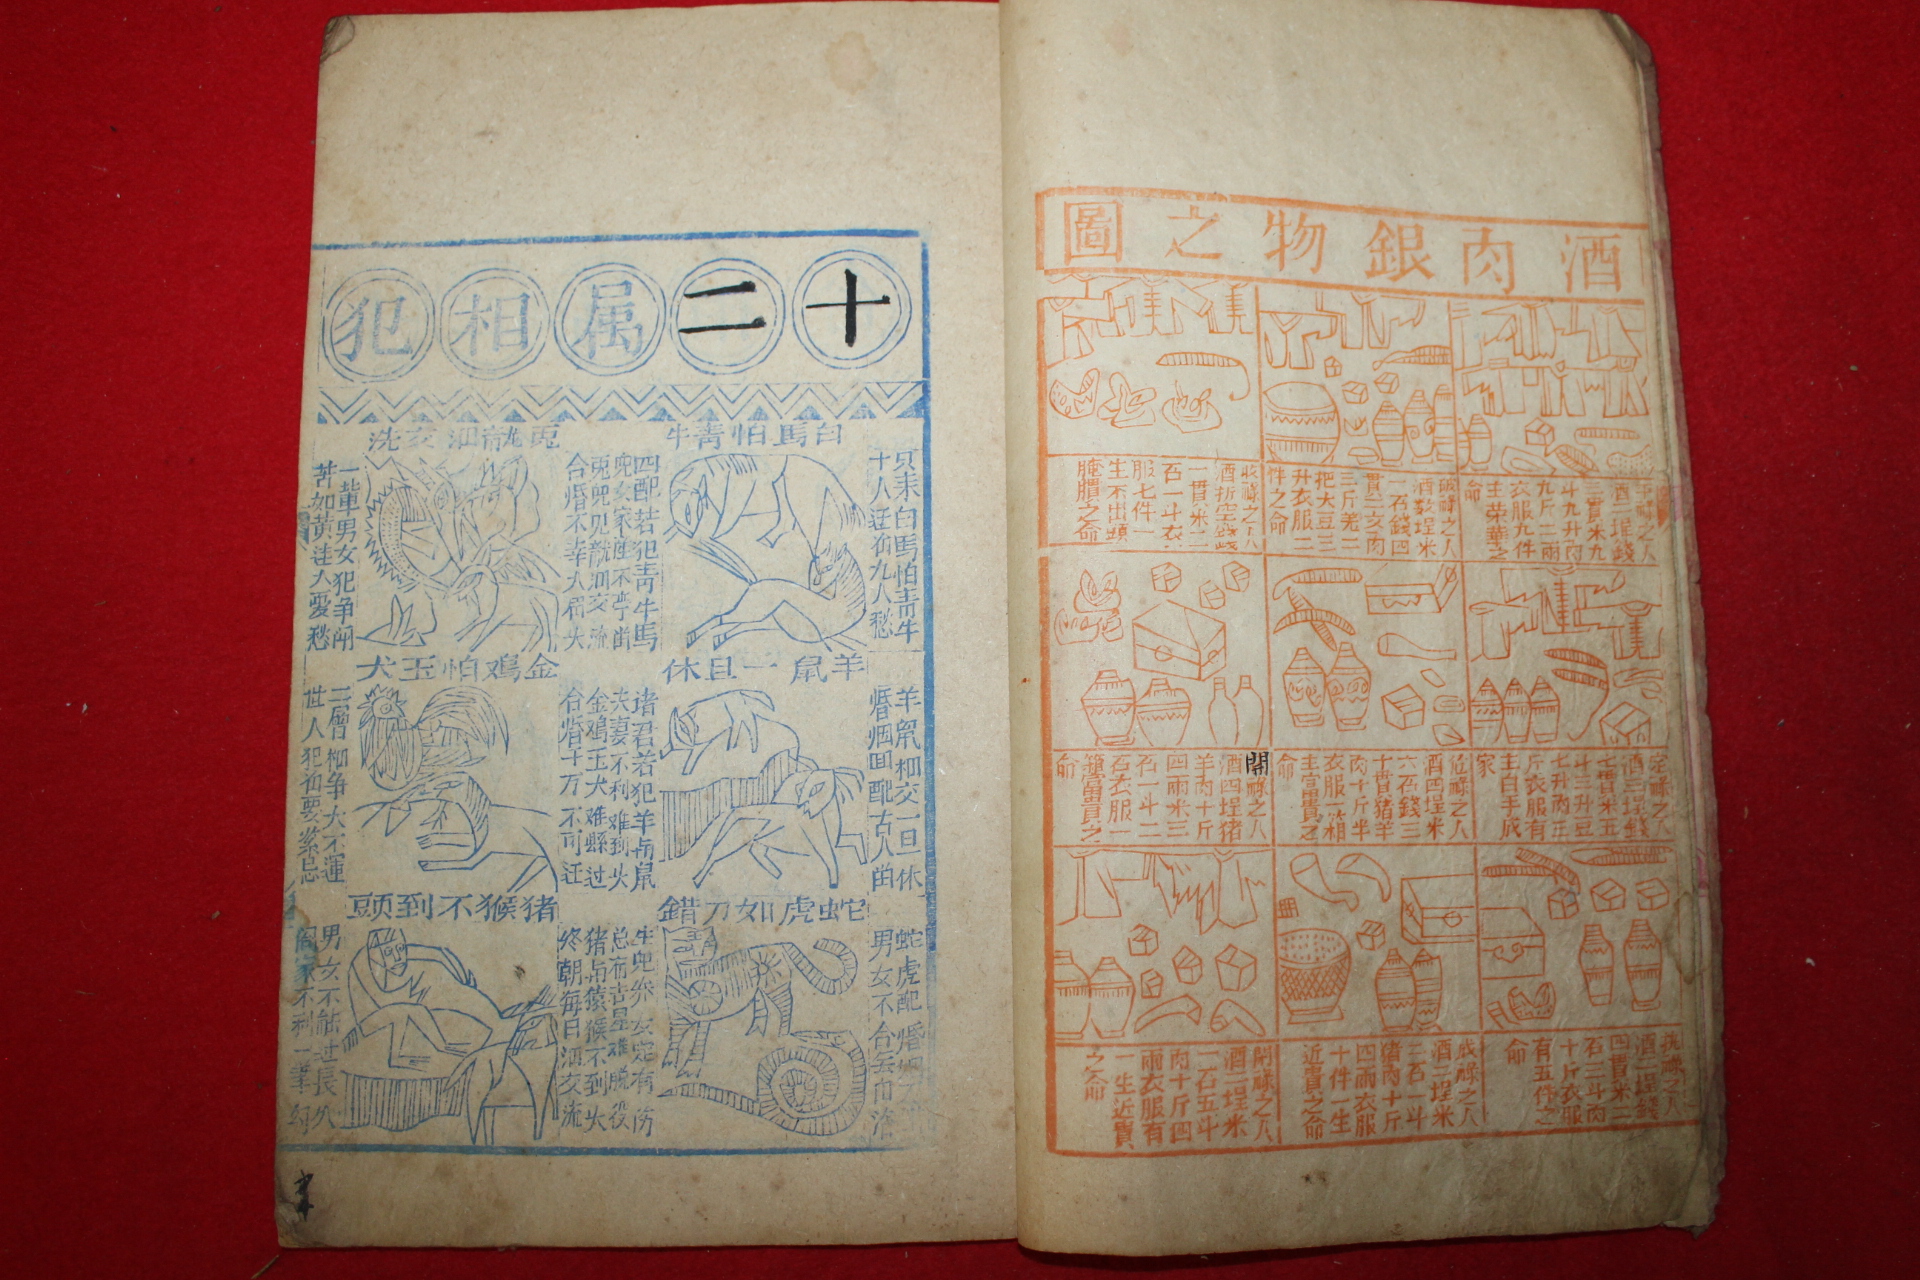 酒肉銀物之圖
酒二埕錢
二貫米九
斗九升肉
九斤二兩
衣服九件
主荣華之
命
破祿之人
酒数埕米
一石錢四
貫二亥肉
三斤羌二
把大豆三
升衣服二
件之命
收祿之人
一貫米二
石一斗衣
服七件一
生不出頭
腌臢之命
定祿之人
酒三埕錢
七貫米五
斗三升豆
七升肉三
斤衣服有
主白手成
家
危祿之人
酒四埕米
六石錢三
十貫猪羊
肉十斤半
衣服一箱
主富貴之
命
開祿之人
酒四埕猪
羊肉十斤
四兩米三
石一斗二
石衣服一
箱富貴之
命
执祿之人
酒二埕錢
四貫米二
石二斗肉
十斤衣服
有五件之
命
成祿之人
酒二埕米
二石一斗
猪肉十斤
四兩衣服
十件一生
近貴之命
閉祿之人
酒二埕米
一石五斗
肉十斤四
兩衣服有
一生近貴
之命
十二属相犯
白馬怕青牛
只未白馬怕青牛
十人迋初九人愁
四配若犯青牛馬
兎龍泪交流
兎兜见龍泪交流
合婚不幸人眉大
一軰男女犯争闹
苦如黄
人憂愁
羊鼠一旦休
羊鼠相交一旦休
婚姻回配古人由
诸君若犯羊与鼠
夫妻不利难到头
金鸡怕玉犬
金鸡玉犬难躲过
合婚千万不可迋
世人犯初要紧忌
蛇虎如刀錯
蛇虎配婚
男女不合
猪猴不到頭
猪与猿猴不到头
终朝每日泪交流
男女不能过長久
阎家不利一筆勾